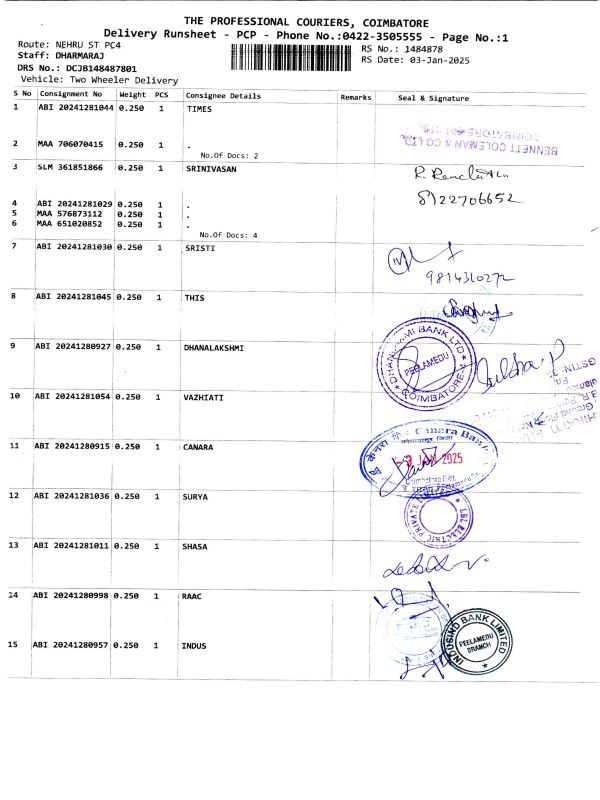 THE PROFESSIONAL COURIERS, COIMBATORE
Delivery Runsheet - PCP - Phone No.:0422-3505555 - Page No.:1
Route: NEHRU ST PC4
RS No.: 1484878
Staff: DHARMARAJ
RS Date: 03-Jan-2025
DRS No.: DCJB148487801
Vehicle: Two Wheeler Delivery
S No Consignment No Weight PCS Consignee Details Remarks Seal & Signature
1 ABI 20241281044 0.250 1 TIMES
BENNETT COLEMAN & CO LTD
COIMBATORE
2 MAA 706070415 0.250 1 .
No.Of Docs: 2
3 SLM 361851866 0.250 1 SRINIVASAN
R.
8122706652
4 ABI 20241281029 0.250 1 .
5 MAA 576873112 0.250 1 .
6 MAA 651020852 0.250 1 .
No.Of Docs: 4
7 ABI 20241281030 0.250 1 SRISTI
9814310272
8 ABI 20241281045 0.250 1 THIS
9 ABI 20241280927 0.250 1 DHANALAKSHMI
DHANLAXMI BANK LTD
PEELAMEDU
COIMBATORE
GSTIN:
10 ABI 20241281054 0.250 1 VAZHIATI
11 ABI 20241280915 0.250 1 CANARA
Canara Bank
-3 JAN 2025
12 ABI 20241281036 0.250 1 SURYA
LBL ELECTRIC PRIVATE LIMITED
13 ABI 20241281011 0.250 1 SHASA
14 ABI 20241280998 0.250 1 RAAC
15 ABI 20241280957 0.250 1 INDUS
INDUSIND BANK LIMITED
PEELAMEDU
BRANCH